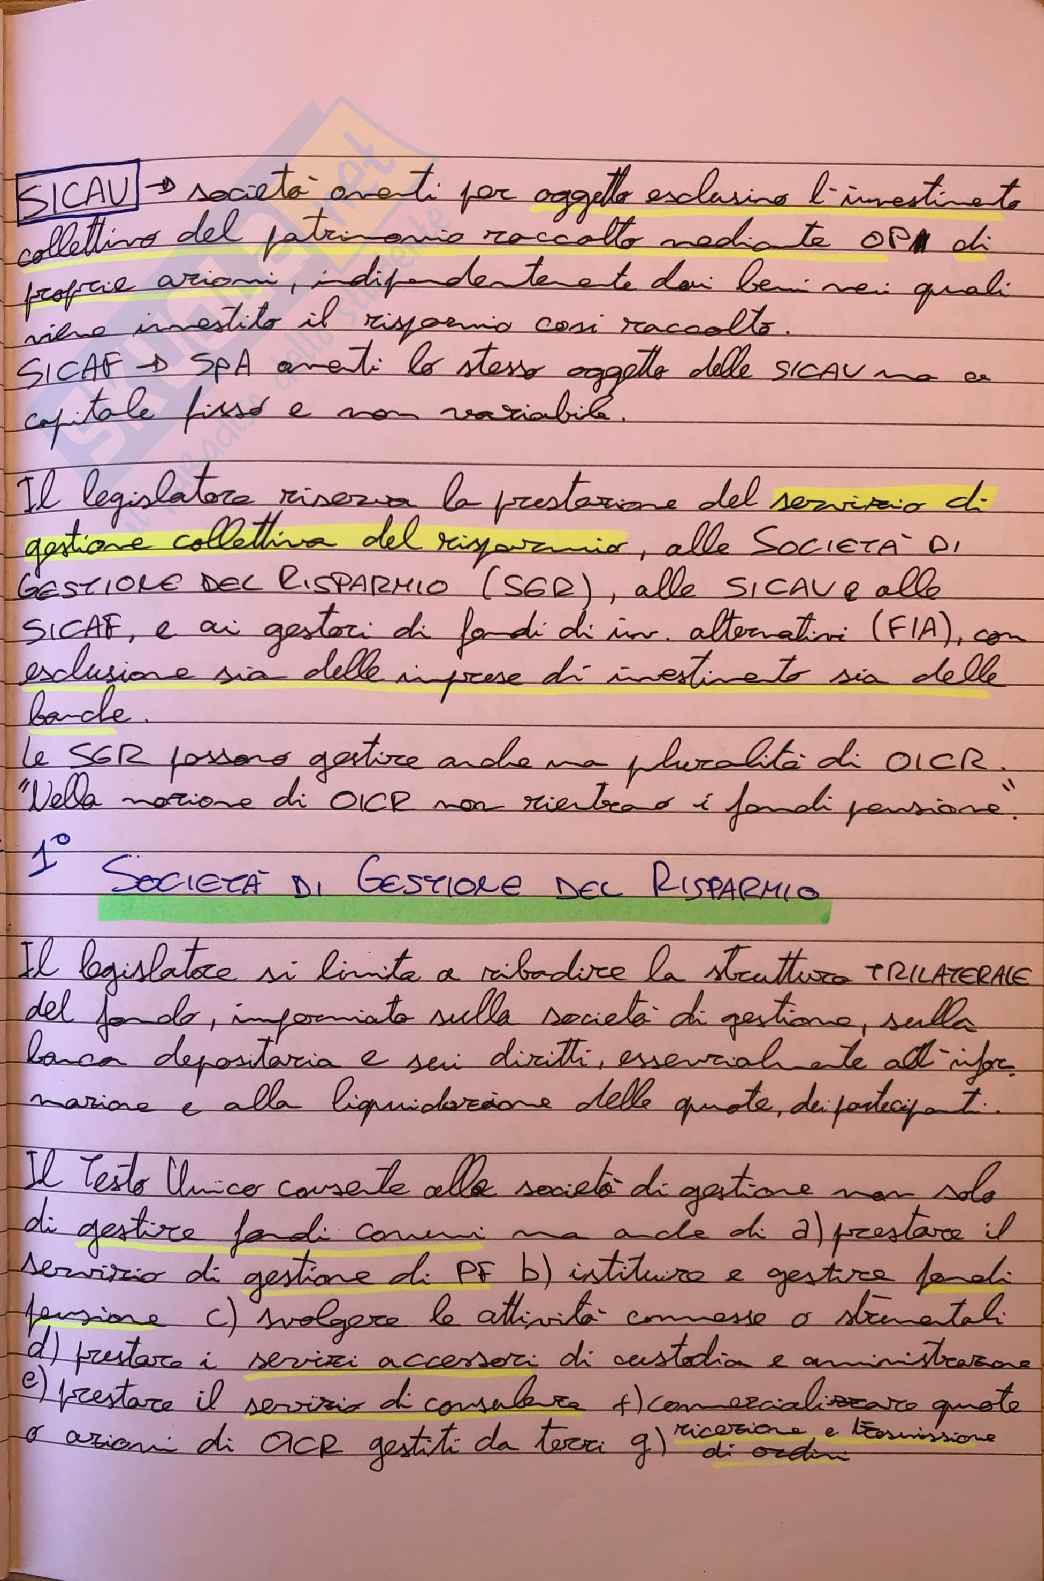 SICAV → società aventi per oggetto esclusivo l'investimento
collettivo del patrimonio raccolto mediante OPA di
proprie azioni, indipendentemente dai beni nei quali
viene investito il risparmio così raccolto.
SICAF → SPA aventi lo stesso oggetto delle SICAV ma a
capitale fisso e non variabile.
Il legislatore riserva la prestazione del servizio di
gestione collettiva del risparmio, alle SOCIETÀ DI
GESTIONE DEL RISPARMIO (SGR), alle SICAV e alle
SICAF, e ai gestori di fondi di inv. alternativi (FIA), con
esclusione sia delle imprese di investimento sia delle
banche.
Le SGR possono gestire anche una pluralità di OICR.
"Nella nozione di OICR non rientrano i fondi pensione".
1° SOCIETÀ DI GESTIONE DEL RISPARMIO
Il legislatore si limita a ribadire la struttura TRILATERALE
del fondo, imperniato sulla società di gestione, sulla
banca depositaria e sui diritti, essenzialmente all'infor-
mazione e alla liquidazione delle quote, dei partecipanti.
Il Testo Unico consente alle società di gestione non solo
di gestire fondi comuni ma anche di a) prestare il
servizio di gestione di PF b) istituire e gestire fondi
pensione c) svolgere le attività connesse o strumentali
d) prestare i servizi accessori di custodia e amministrazione
e) prestare il servizio di consulenza f) commercializzare quote
o azioni di OICR gestiti da terzi g) ricezione e trasmissione
di ordini